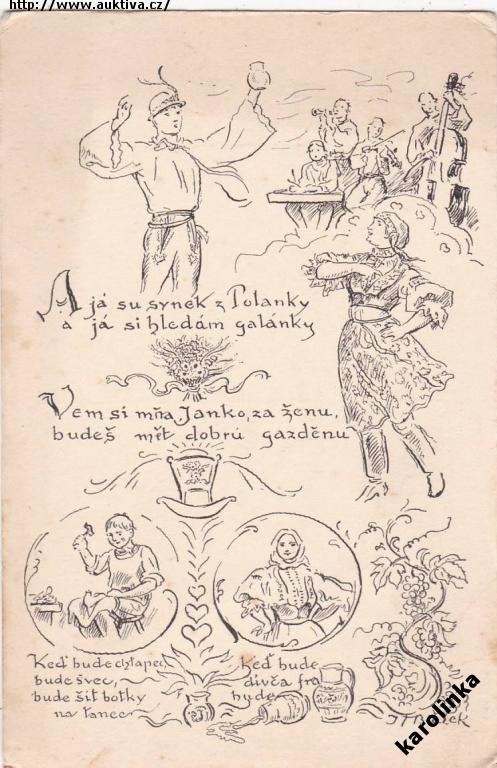 http://www.auktiva.cz/
A já su synek z Polanky
a já si hledám galánky
Vem si mňa, Janko, za ženu,
budeš mět dobrú gazděnu
Keď bude chłapec,
bude švec,
bude šit botky
na tanec
Keď bude
divča
bude
karolinka